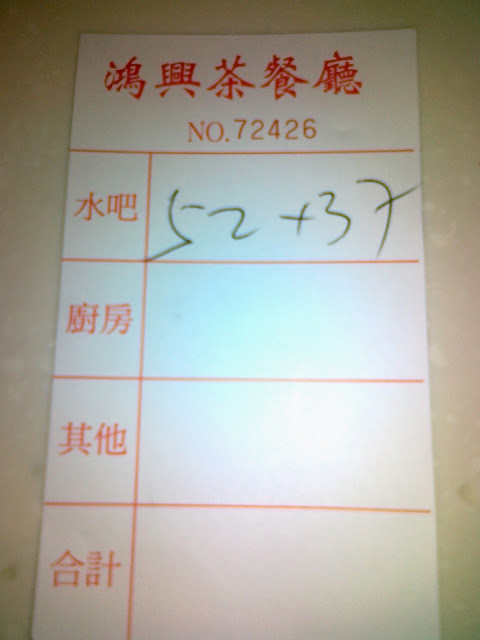 鴻興茶餐廳
NO. 72426
水吧 52 +37
廚房
其他
合計